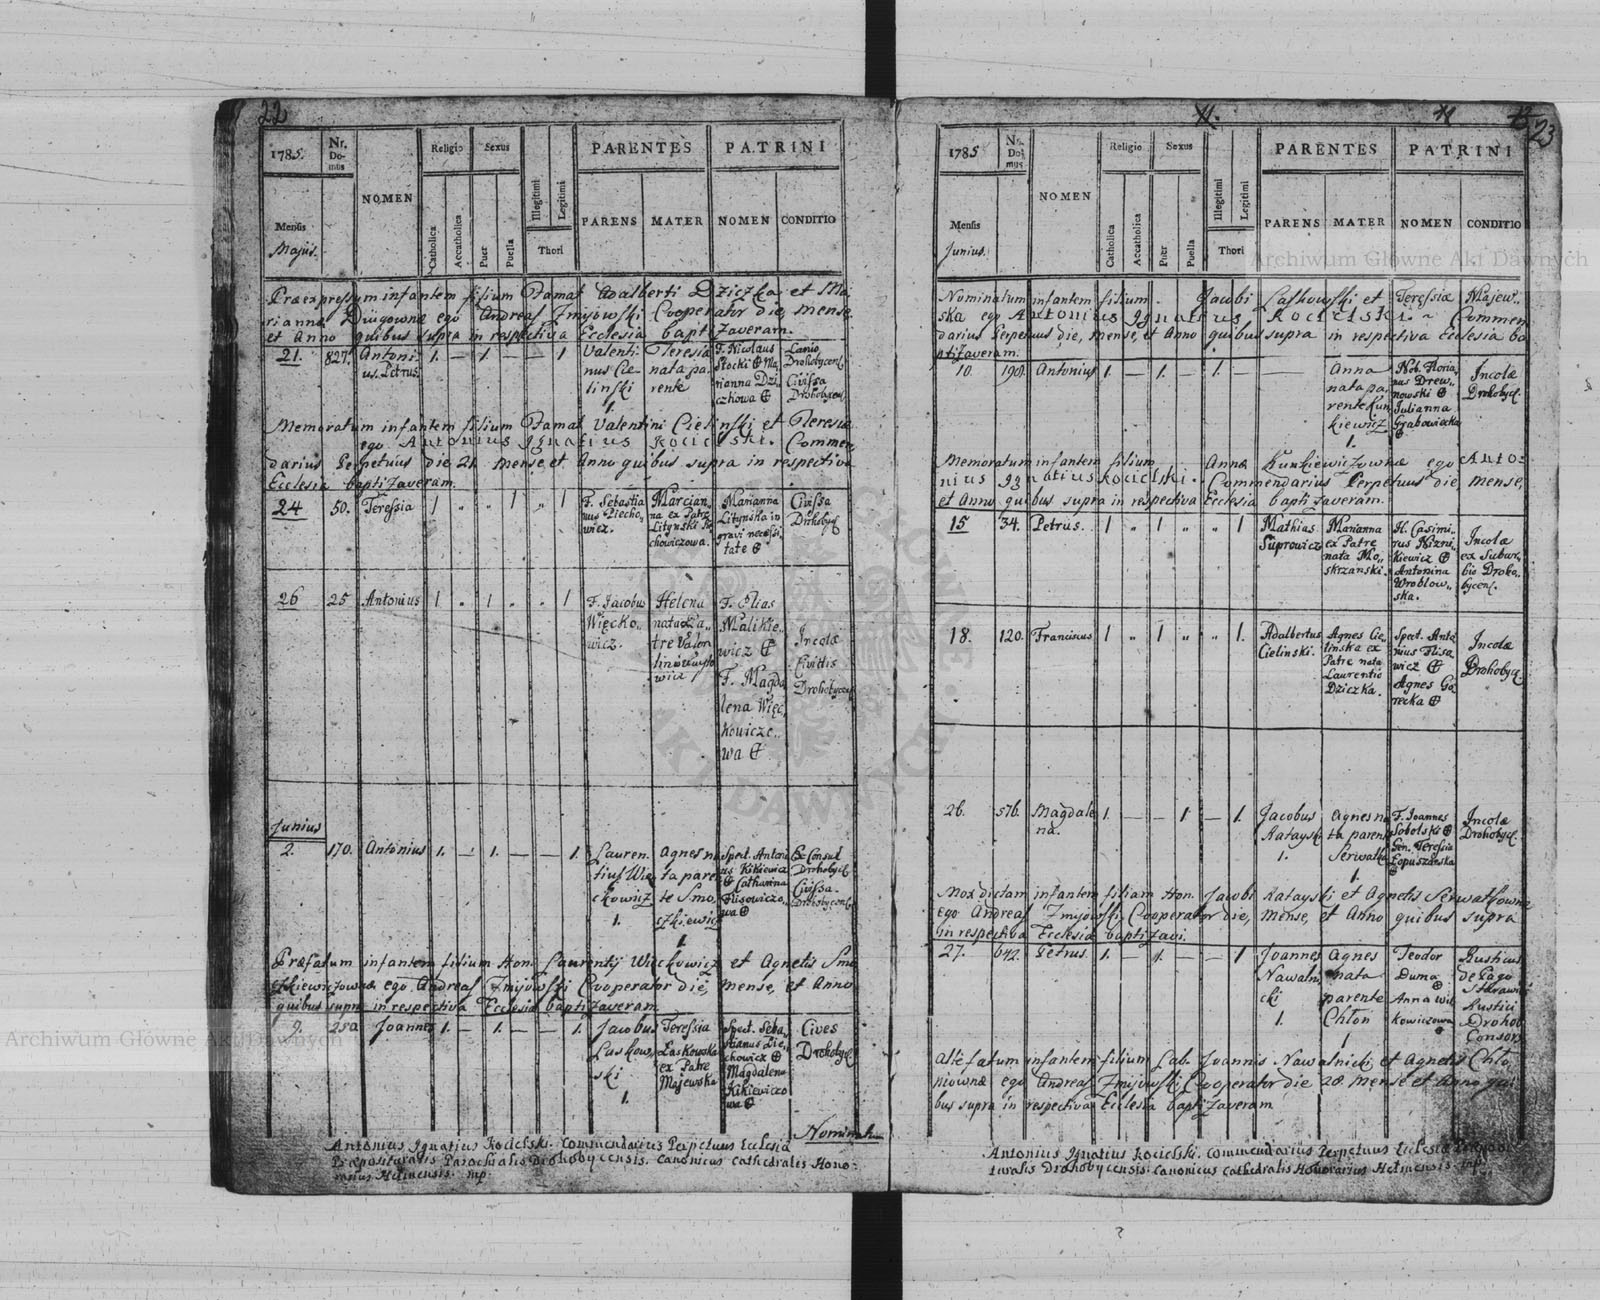 22
1785.
Nr. Domus
NOMEN
Religio
Sexus
Catholica
Accatholica
Puer
Puella
Illegitimi
Legitimi
Thori
PARENTES
PATRINI
PARENS
MATER
NOMEN
CONDITIO
Mensis
Majus.
Præexpressum infantem filium Famat Adalberti Dziczka et Ma
riannæ Długownæ ego Andreas Zmijowski Cooperator die, mense,
et Anno quibus supra in respectiva Ecclesia baptizaveram.
21. 827. Antoni
us. Petrus. 1. — 1. — — 1
Valenti
nus Cie
linski
1.
Teresia
nata pa
rente
F. Nicolaus
Stocki ⊕ Ma
rianna Dzi
czkowa ⊕
Lanio
Drohobycen.
Civissa
Drohobycen.
Memoratum infantem filium Famat Valentini Cielinski et Teresiæ
ego Antonius Ignatius Kocielski. Commen
darius Perpetuus die 21 mense et Anno quibus supra in respectiva
Ecclesia baptizaveram.
24 50. Teressia 1 „ „ 1 „ 1
F. Sebastia
nus Piecho
wicz.
Marcian
na ex Patre
Litynski Pie
chowiczowa.
Marianna
Litynska in
gravi necessi
tate ⊕
Civissa
Drohobyc.
26 25 Antonius 1 „ 1 „ „ 1
F. Jacobus
Więcko„
wicz.
Helena
nata Pa„
tre Valen
F. Elias
Malikie„
wicz ⊕
F. Magda
lena Więc„
kowiczo„
wa ⊕
Incolæ
Civittis
Drohobycen.
Junius
2. 170. Antonius 1. — 1. — — 1.
Lauren„
tius Wię
ckowicz
1.
Agnes na
ta paren
te Smo„
czkiewicz
1.
Spect. Antoni
us Kikiewicz
⊕ Catharina
Elisowiczo„
wa ⊕
Ex Consul
Drohobyc.
Civissa
Drohobycen.
Præfatum infantem filium Hon. Laurentij Więckowicz et Agnetis Smo
czkiewiczownæ ego Andreas Zmijowski Cooperator die, mense, et Anno
quibus supra in respectiva Ecclesia baptizaveram
9. 250 Joannes 1. — 1. — — 1.
Jacobus
Laskow„
ski
1.
Teressia
Laskowska
ex Patre
Majewska
Spect. Seba„
stianus Pie„
chowicz ⊕
Magdalena
Kikiewiczo
wa ⊕
Cives
Drohobyc.
Nominatum
Antonius Ignatius Kocielski. Commendarius Perpetuus Ecclesiæ
Præpositoralis Parochialis Drohobycensis. Canonicus Cathedralis Hono„
rarius Helmensis. mp.
11.
11
23
1785
Nr. Domus
NOMEN
Religio
Sexus
Catholica
Accatholica
Puer
Puella
Illegitimi
Legitimi
Thori
PARENTES
PATRINI
PARENS
MATER
NOMEN
CONDITIO
Mensis
Junius.
Nominatum infantem filium Jacobi Laskowski et Teressiæ Majew„
ska ego Antonius Ignatius Kocielski Commen
darius Perpetuus die, mense, et Anno quibus supra in respectiva Ecclesia ba
ptizaveram.
10. 190. Antonius 1. — 1. — 1. — —
Anna
nata pa
rente Kun
kiewicz
1.
Nob. Floria
nus Drew„
nowski ⊕
Julianna
Grabowiecka
⊕
Incolæ
Drohobyc.
Memoratum infantem filium Annæ Kunkiewiczownæ ego Anto„
nius Ignatius Kocielski. Commendarius Perpetuus die, mense,
et Anno quibus supra in respectiva Ecclesia baptizaveram.
15 34. Petrus. 1 „ 1 „ „ 1
Mathias
Suprowicz
Marianna
ex Patre
nata Mo„
skrzanski.
H. Casimi„
rus Nizni„
kiewicz ⊕
Antonina
Wroblow„
ska.
Incolæ
ex Subur„
bio Droho„
bycen.
18. 120. Franciscus 1 „ 1 „ „ 1.
Adalbertus
Cielinski.
Agnes Cie„
linska ex
Patre nata
Laurentio
Dziczka.
Spect. Anto„
nius Elisa„
wicz ⊕
Agnes Go„
recka ⊕
Incolæ
Drohobyc.
26. 576. Magdale
na. 1. — — 1 — 1.
Jacobus
Katayski
1.
Agnes na
ta parente
Serwatka
1.
F. Joannes
Sobolski ⊕
Gen. Teressia
Lopuszanska
⊕
Incolæ
Drohobyc.
Mox dictam infantem filiam Hon. Jacobi Katayski et Agnetis Serwathowna
ego Andreas Zmijowski Cooperator die, mense, et Anno quibus supra
in respectiva Ecclesia baptizavi.
27. 642. Petrus. 1. — 1. — — 1
Joannes
Nawalni„
cki
1.
Agnes
nata
parente
Chłon
1
Teodor
Duma
⊕
Anna Wit
kowiczowa
⊕
Rusticus
de Pago
Rustici
Drohob
Consors
Altefatum infantem filium Lab. Joannis Nawalnicki et Agnetis Chło
niownæ ego Andreas Zmijowski Cooperator die 28. mense et Anno qui
bus supra in respectiva Ecclesia baptizaveram
Antonius Ignatius Kocielski. Commendarius Perpetuus Ecclesiæ Præposi
turalis Drohobycensis. Canonicus Cathedralis Honorarius Helmensis mp.
Archiwum Główne Akt Dawnych
Archiwum Główne Akt Dawnych